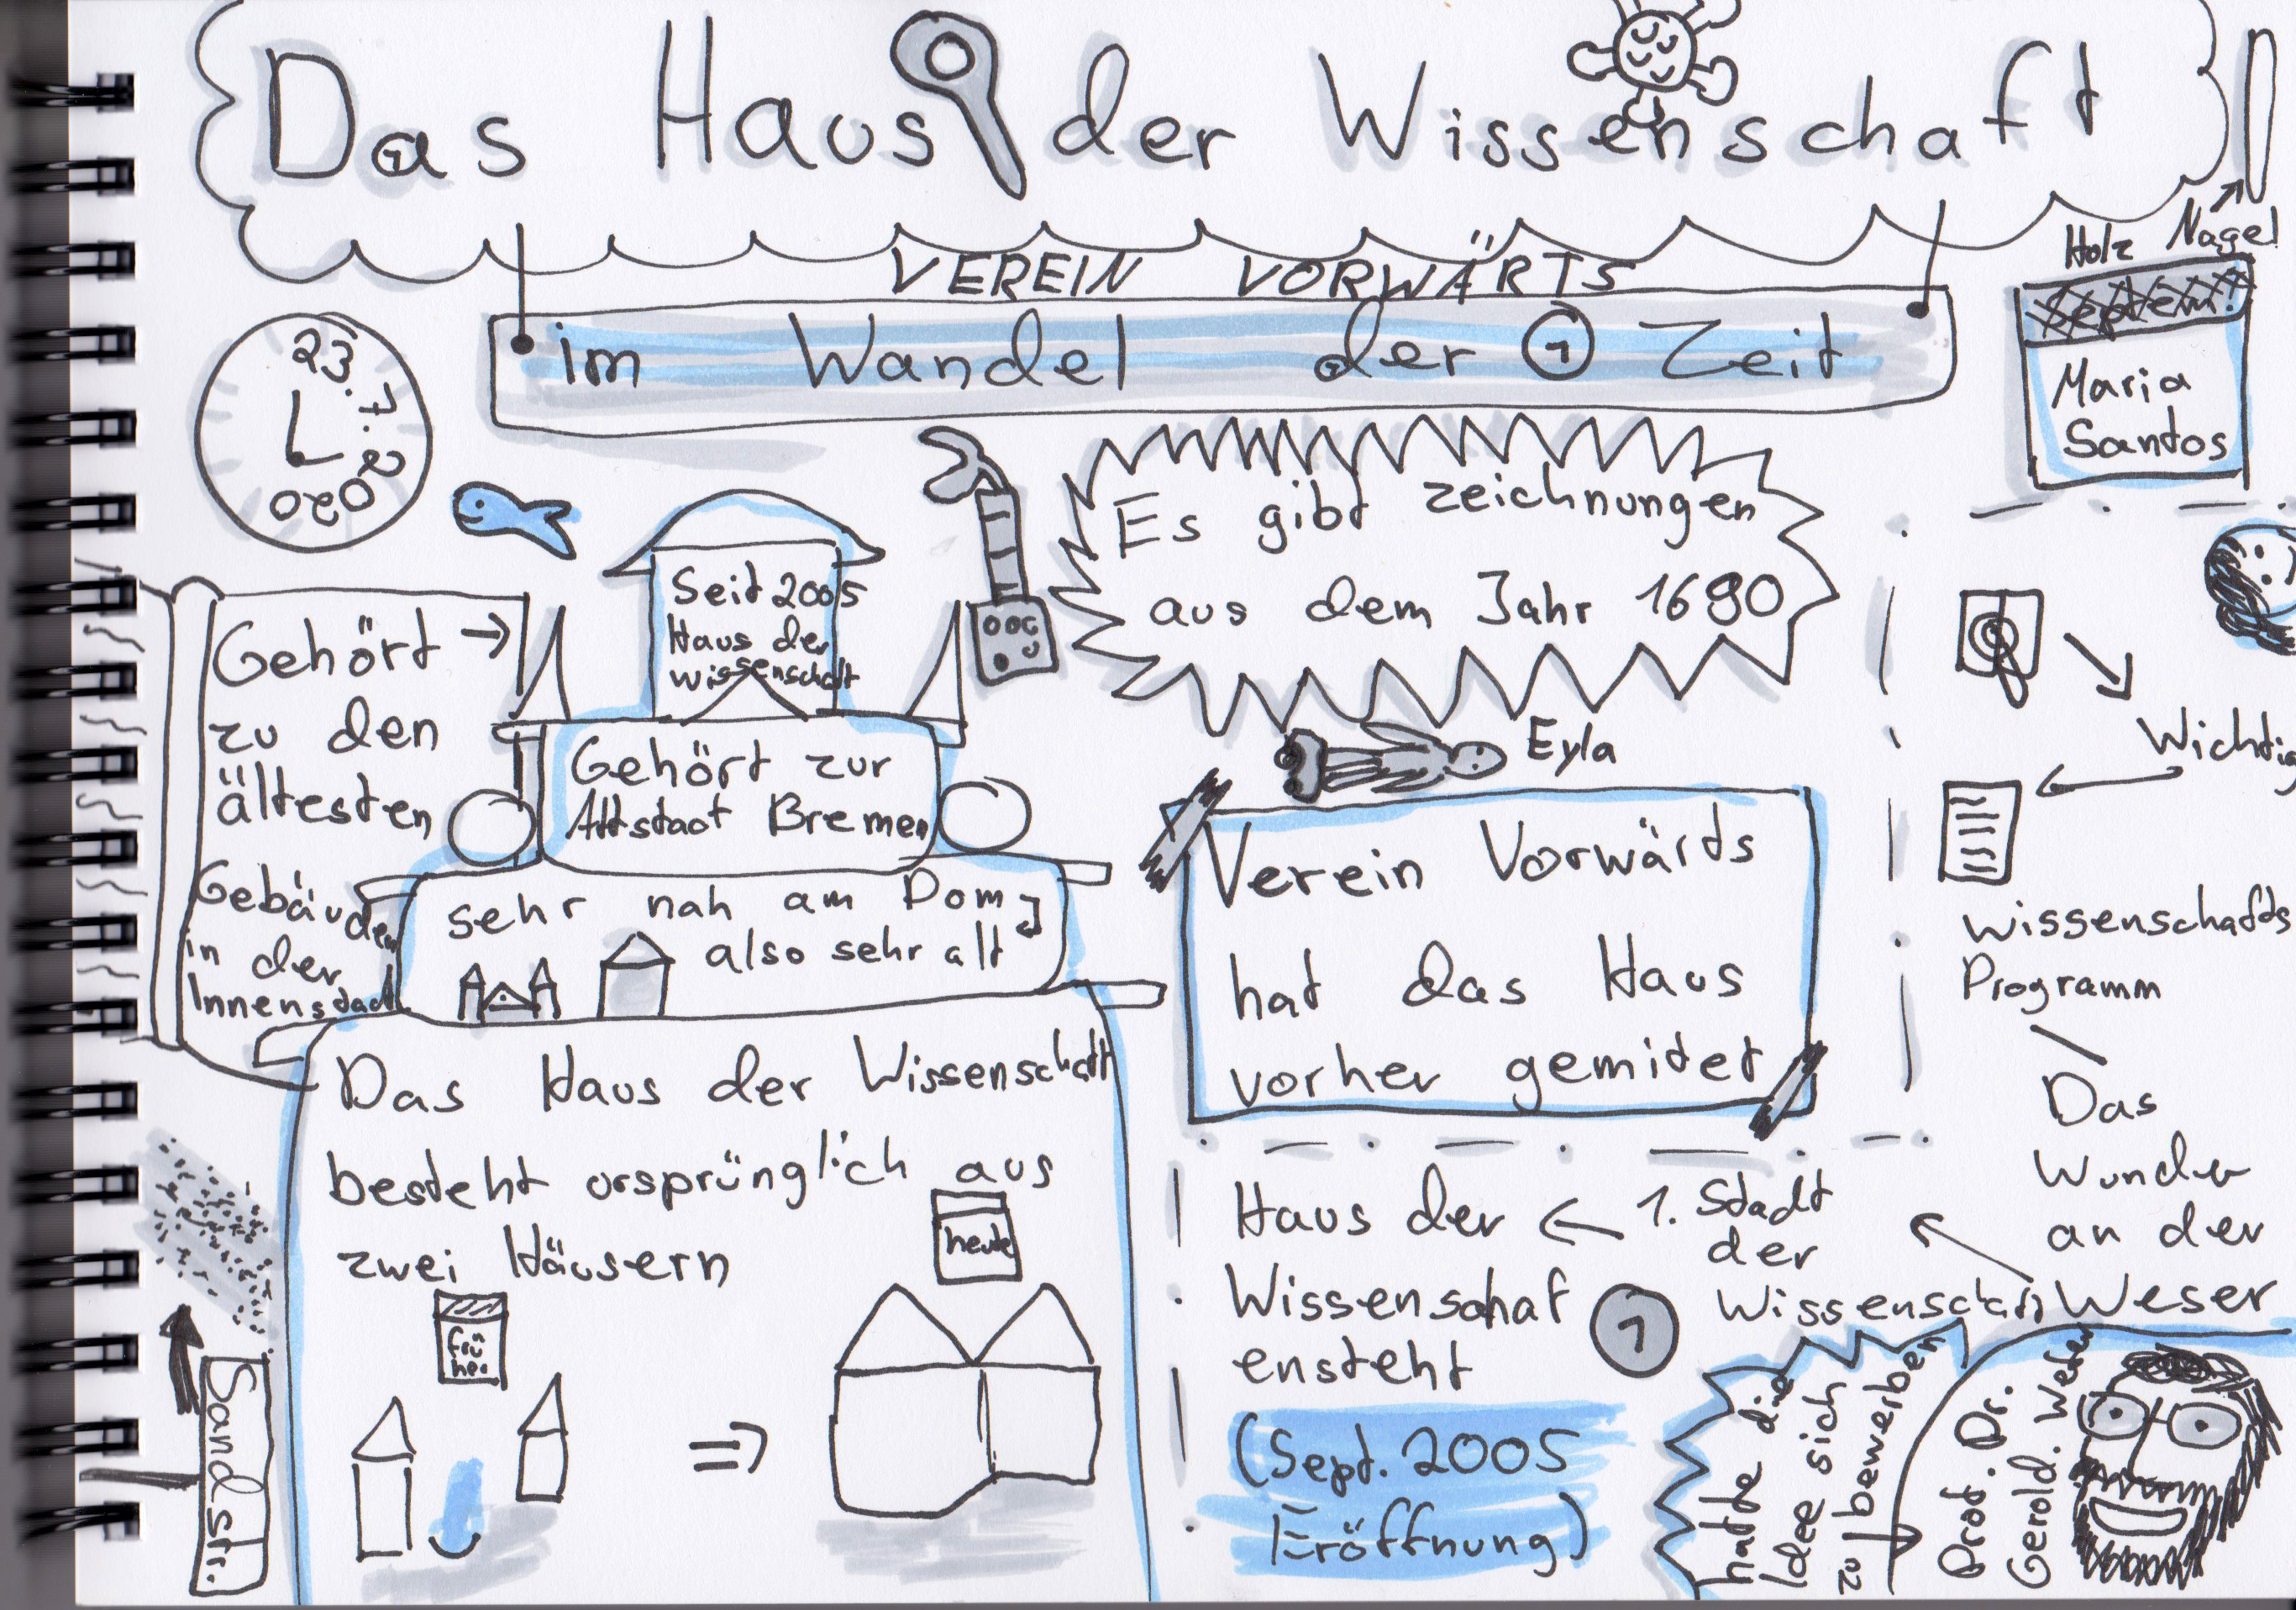 Das Haus der Wissenschaft
VEREIN VORWÄRTS
im Wandel der Zeit
Holz Nagel
Maria
Santos
23.
Es gibt zeichnungen
aus dem Jahr 1690
Seit 2005
Haus der
wissenschaft
Gehört
zu den
ältesten
Gebäuden
in der
Innenstadt
Gehört zur
Altstadt Bremen
sehr nah am Dom
also sehr alt
Das Haus der Wissenschaft
besteht orsprünglich aus
zwei Häusern
heute
frü
her
Sandstr.
Eyla
Verein Vorwärts
hat das Haus
vorher gemitet
Wichtig
wissenschafts
Programm
Das
Wunder
an der
Weser
1. Stadt
der
Wissenschaft
Haus der
Wissenschaft
ensteht
(Sept. 2005
Eröffnung)
hatte die
Idee sich
zu bewerben
Prof. Dr.
Gerold. Wefer